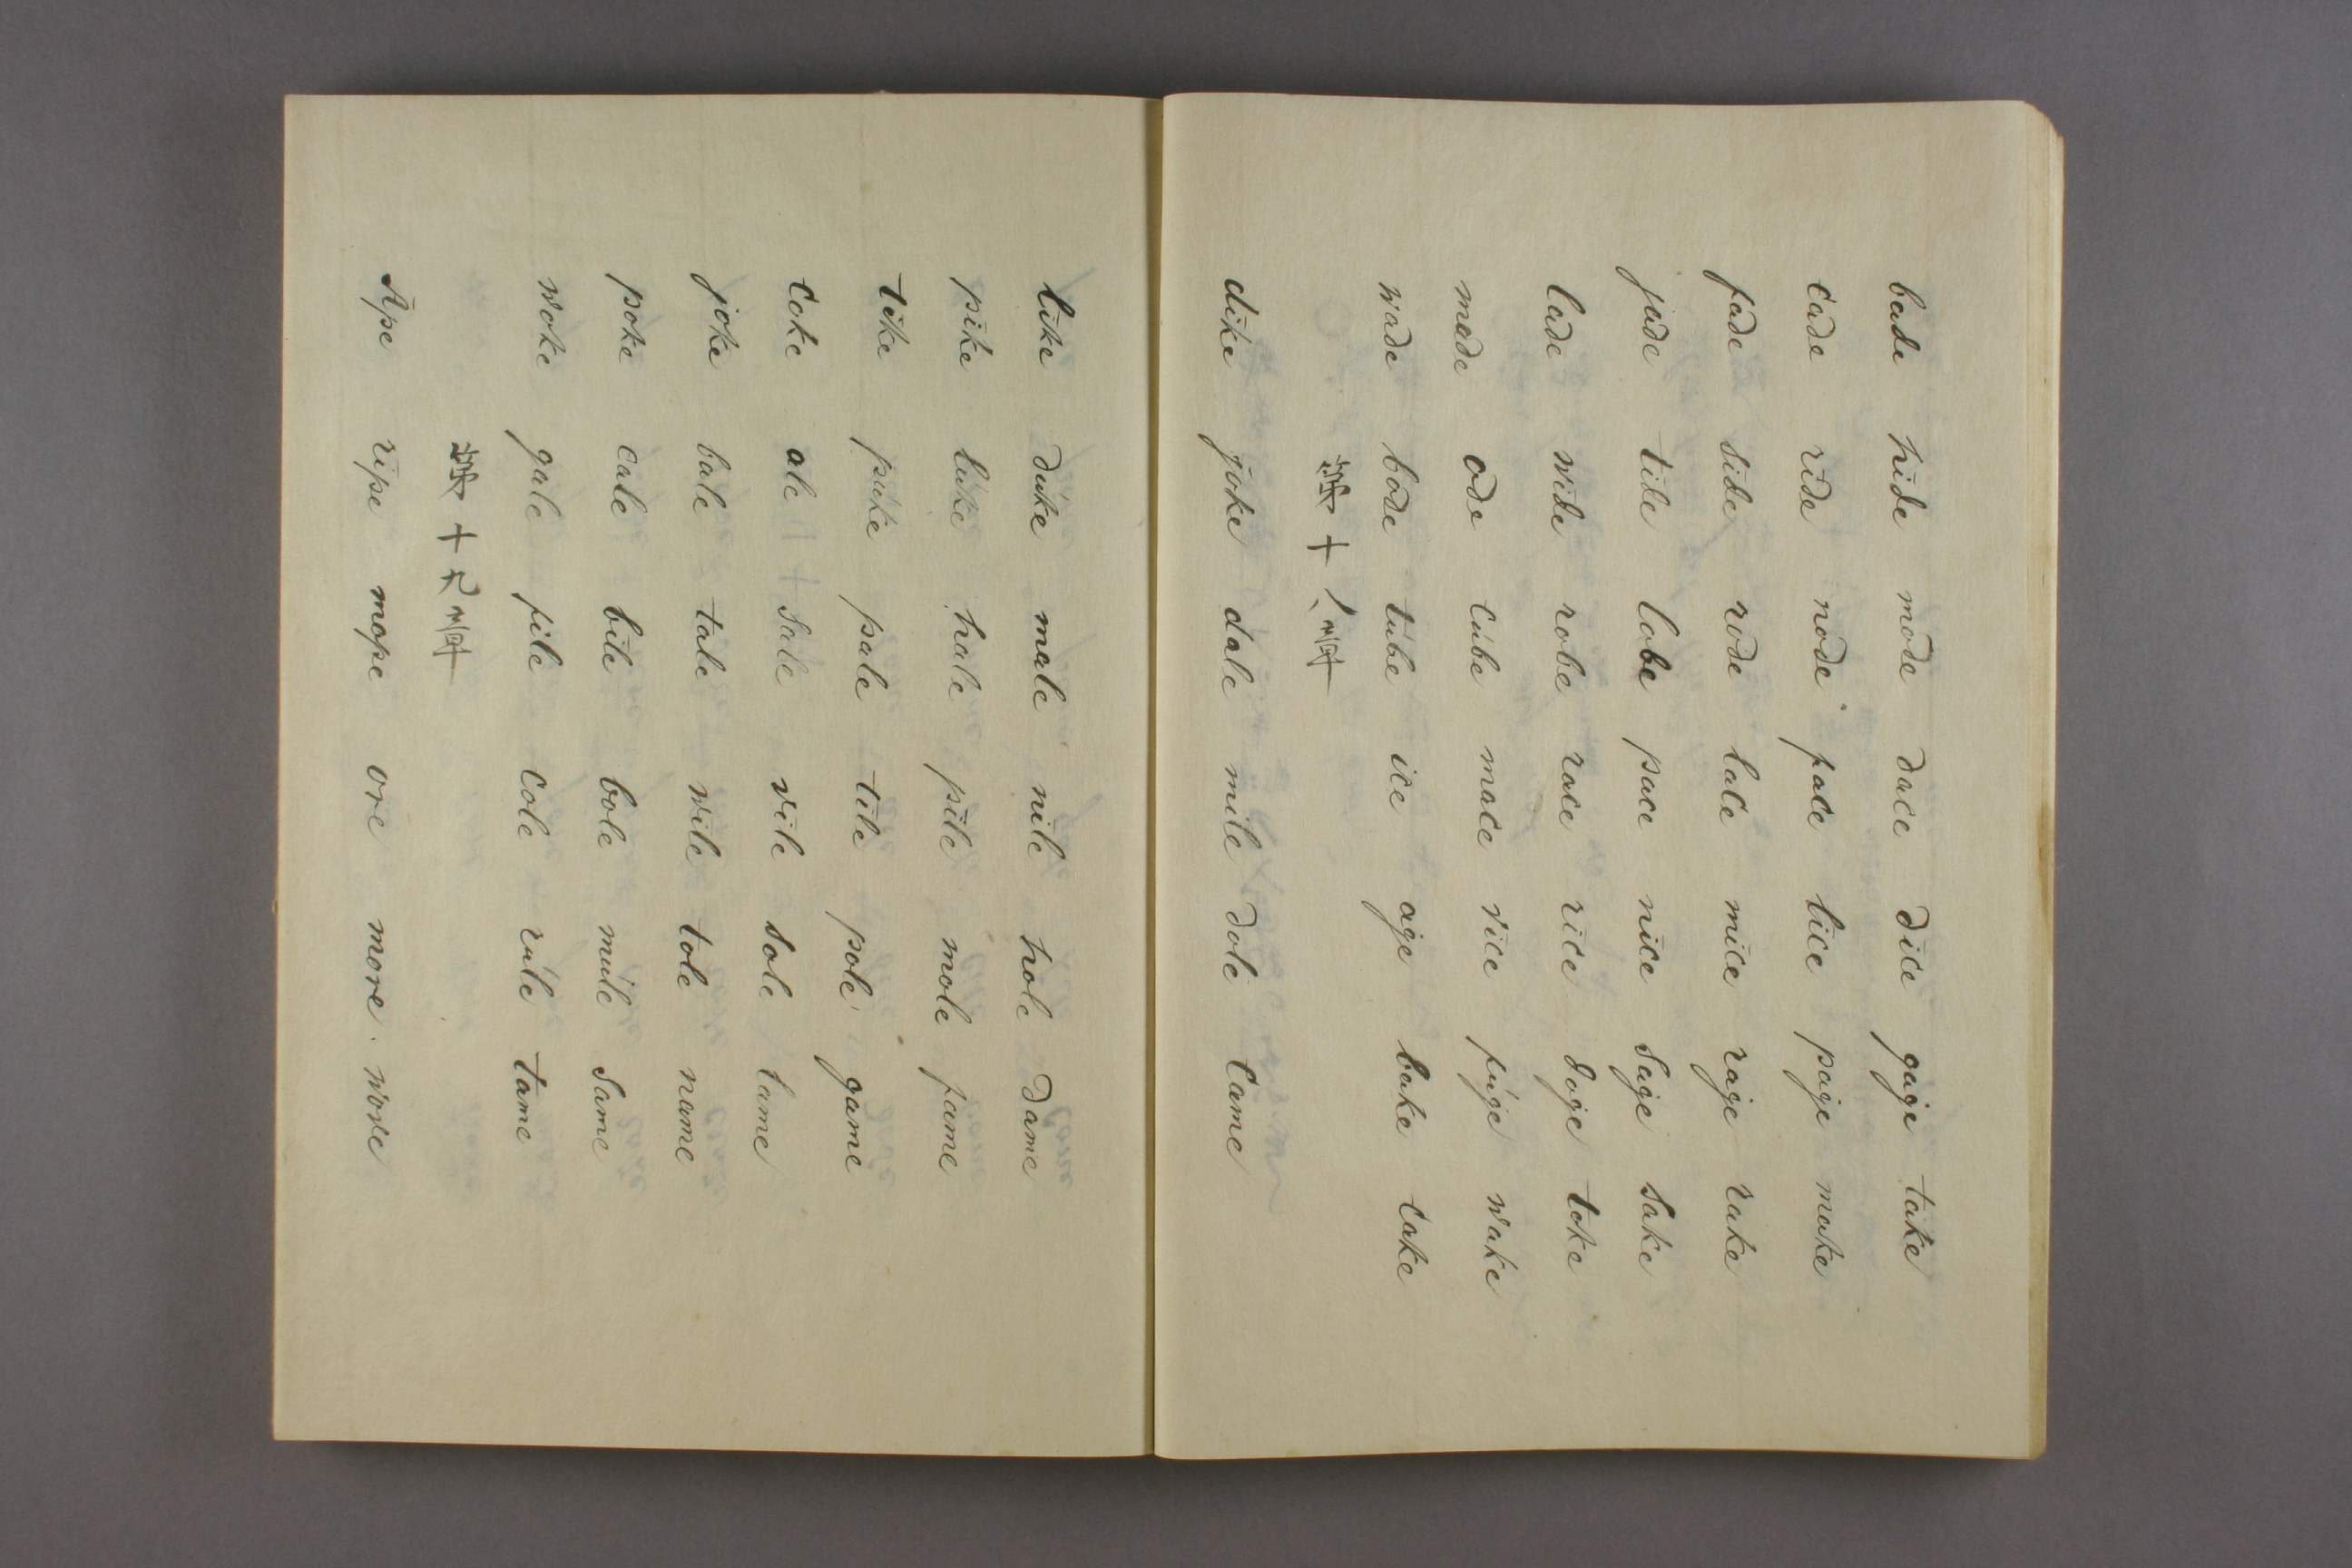 bade hide mode dace dice gage take
cade ride node face lice page make
fade side rode lace mice rage rake
jade tide lobe pace nice sage sake
lade wide robe race rice doge toke
made ode cube mace vice fuge wake
wade bode tube ice age bake cake
第十八章
dike joke dale mile dole came
like duke male nile hole dame
pike luke hale pile mole fame
tike puke pale tile pole game
coke ale sale vile sole lame
joke bale tale wile tole name
poke cale bile bole mule same
woke gale file cole rule tame
第十九章
Ape ripe mope ore more wove